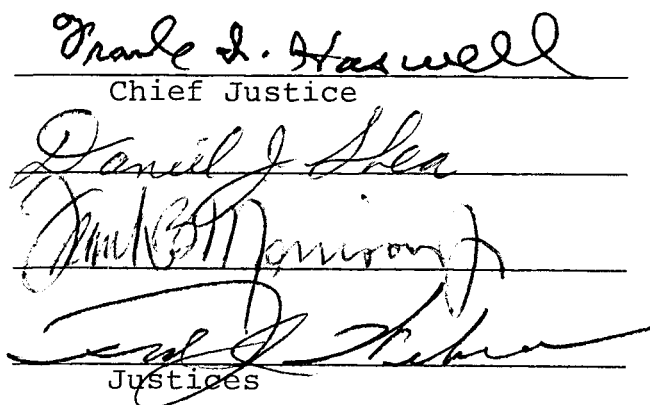 Frank I. Haswell
Chief Justice
Daniel J Shea
Frank B Morrison Jr
Fred J Weber
Justices